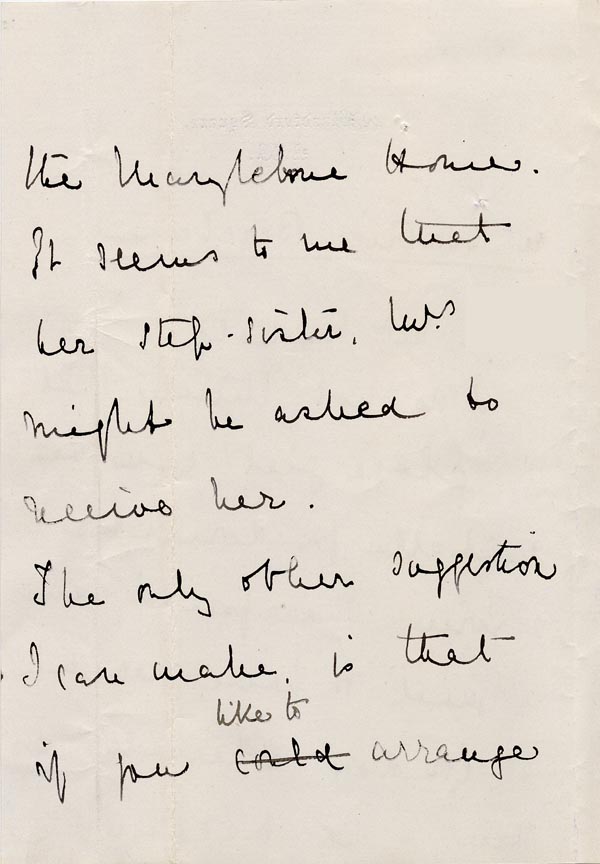 the Marylebone Home.
It seems to me that
her step-sister, Mrs
might be asked to
receive her.
The only other suggestion
I can make, is that
like to
if you could arrange